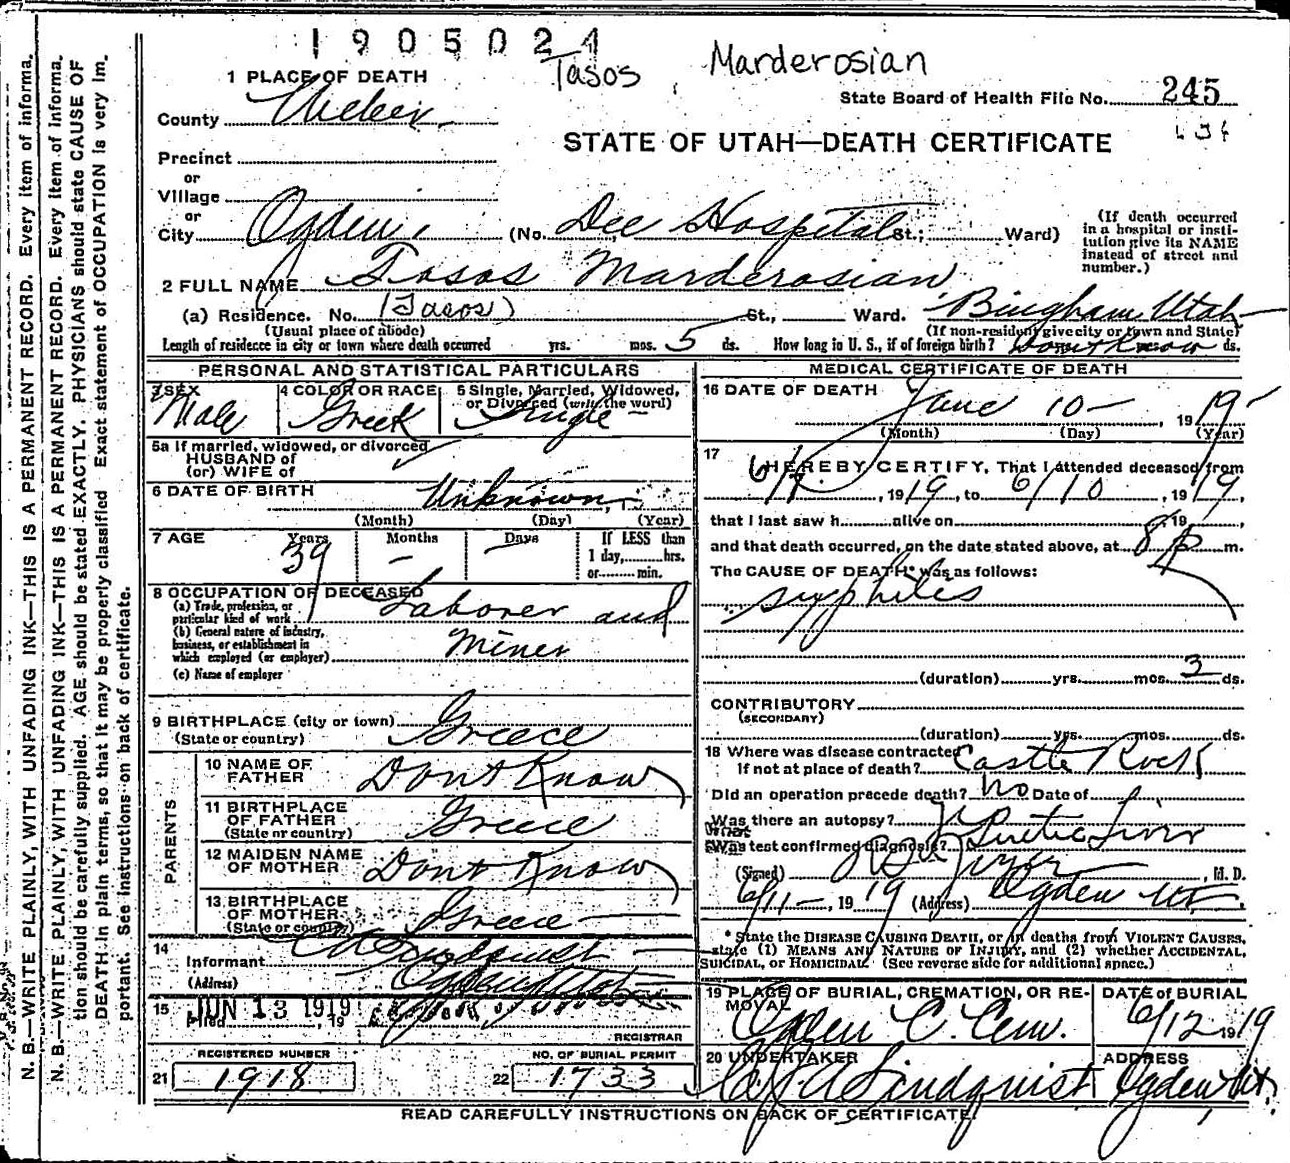 1905024
Tasos Marderosian
1 PLACE OF DEATH
State Board of Health File No. 245
County Weber
STATE OF UTAH—DEATH CERTIFICATE
Precinct
or
Village
or
City Ogden, (No. Dee Hospital St.; Ward)
(If death occurred in a hospital or institution give its NAME instead of street and number.)
2 FULL NAME Tasos Marderosian
(a) Residence. No. (Tasos) St., Ward. Bingham Utah
(Usual place of abode) (If non-resident give city or town and State)
Length of residence in city or town where death occurred yrs. mos. 5 ds. How long in U. S., if of foreign birth? Don't Know ds.
PERSONAL AND STATISTICAL PARTICULARS
3 SEX Male
4 COLOR OR RACE Greek
5 Single, Married, Widowed, or Divorced (write the word) Single
5a If married, widowed, or divorced
HUSBAND of
(or) WIFE of
6 DATE OF BIRTH Unknown
(Month) (Day) (Year)
7 AGE Years 39 Months — Days — If LESS than 1 day, hrs. or min.
8 OCCUPATION OF DECEASED
(a) Trade, profession, or particular kind of work Laborer and
(b) General nature of industry, business, or establishment in which employed (or employer) Miner
(c) Name of employer
9 BIRTHPLACE (city or town) Greece
(State or country)
PARENTS
10 NAME OF FATHER Dont Know
11 BIRTHPLACE OF FATHER (State or country) Greece
12 MAIDEN NAME OF MOTHER Dont Know
13 BIRTHPLACE OF MOTHER (State or country) Greece
14 Informant Lindquist
(Address) Ogden Utah
15 Filed JUN 13 1919, 19
REGISTRAR
REGISTERED NUMBER
21 1918
NO. OF BURIAL PERMIT
22 1733
MEDICAL CERTIFICATE OF DEATH
16 DATE OF DEATH June 10 - 1919
(Month) (Day) (Year)
17 I HEREBY CERTIFY, That I attended deceased from
6/7, 1919, to 6/10, 1919,
that I last saw h alive on 19,
and that death occurred, on the date stated above, at 8 p m.
The CAUSE OF DEATH* was as follows:
syphiles
(duration) yrs. mos. 3 ds.
CONTRIBUTORY
(SECONDARY)
(duration) yrs. mos. ds.
18 Where was disease contracted
If not at place of death? Castle Rock
Did an operation precede death? no Date of
Was there an autopsy?
What test confirmed diagnosis? Luetic Liver
(Signed) , M. D.
6/11-, 1919 (Address) Ogden Ut.
* State the DISEASE CAUSING DEATH, or in deaths from VIOLENT CAUSES, state (1) MEANS AND NATURE OF INJURY, and (2) whether ACCIDENTAL, SUICIDAL, or HOMICIDAL. (See reverse side for additional space.)
19 PLACE OF BURIAL, CREMATION, OR REMOVAL Ogden C. Cem.
DATE of BURIAL 6/12 1919
20 UNDERTAKER Lindquist
ADDRESS Ogden Ut.
READ CAREFULLY INSTRUCTIONS ON BACK OF CERTIFICATE.
N. B.—WRITE PLAINLY, WITH UNFADING INK—THIS IS A PERMANENT RECORD. Every item of informa-
N. B.—WRITE PLAINLY, WITH UNFADING INK—THIS IS A PERMANENT RECORD. Every item of informa-
tion should be carefully supplied. AGE should be stated EXACTLY. PHYSICIANS should state CAUSE OF
DEATH in plain terms, so that it may be properly classified Exact statement of OCCUPATION is very im.
portant. See instructions on back of certificate.